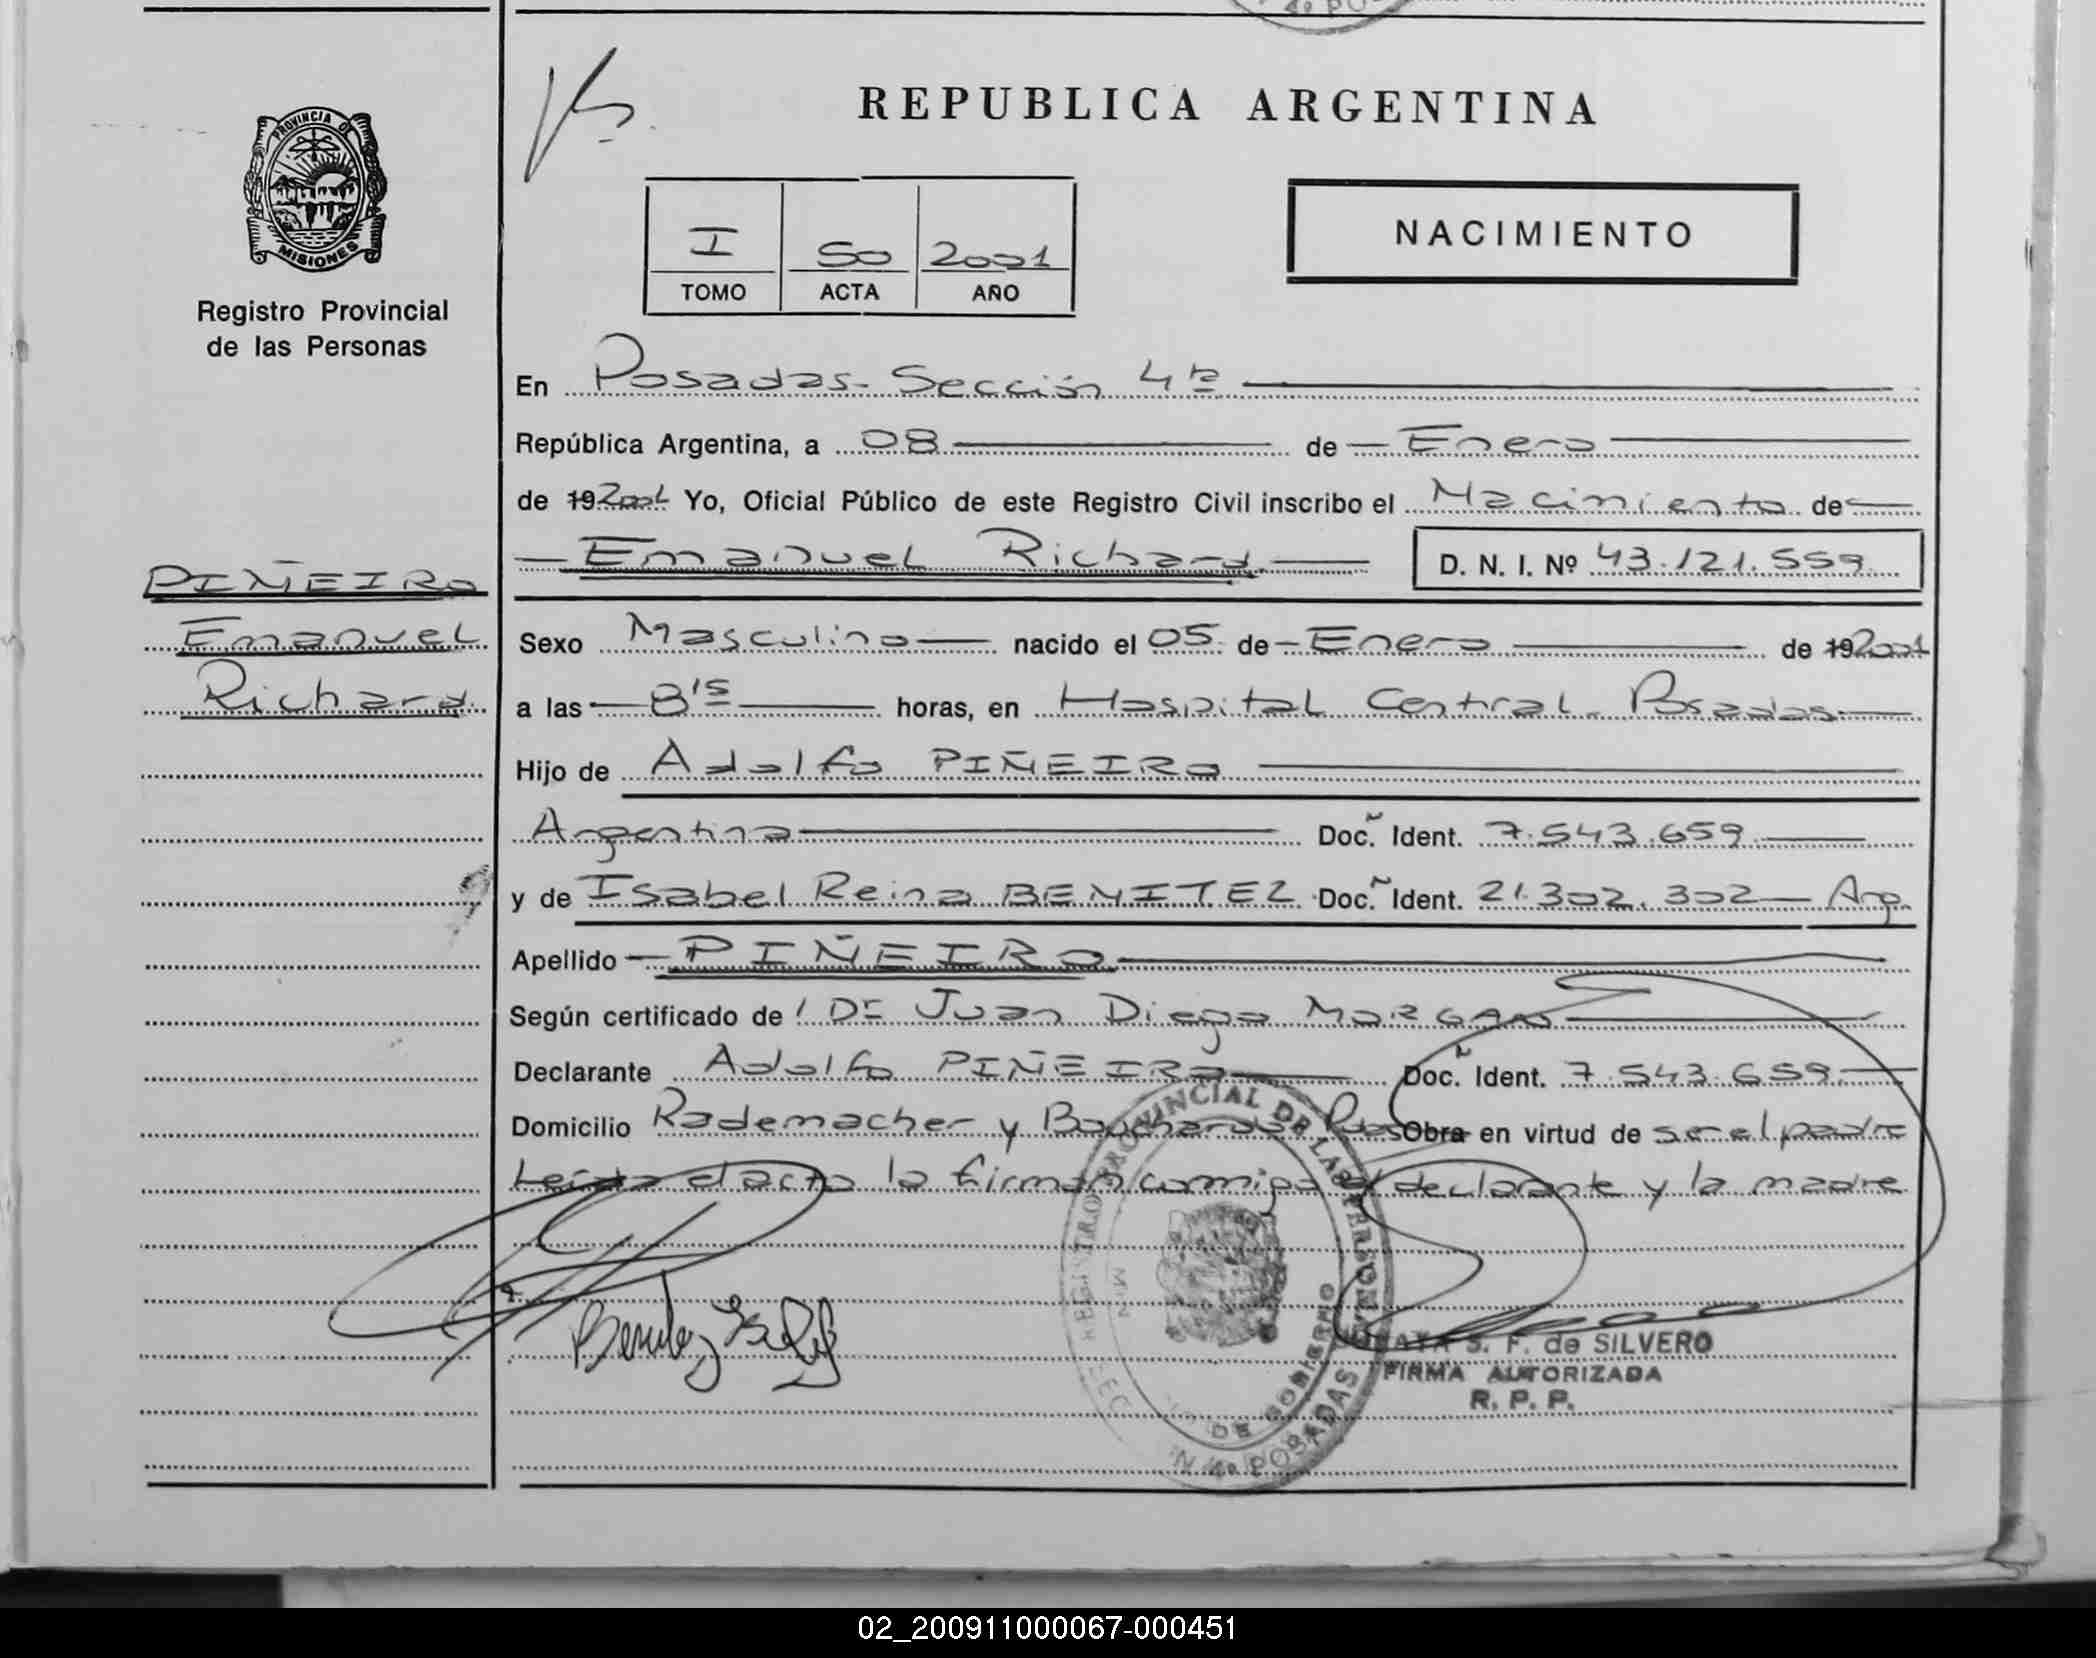 4º PO
REPUBLICA ARGENTINA
PROVINCIA DE
MISIONES
Registro Provincial
de las Personas
I 50 2001
TOMO ACTA AÑO
NACIMIENTO
En Posadas-Sección 4ta
República Argentina, a 08 de Enero
de 192001 Yo, Oficial Público de este Registro Civil inscribo el Nacimiento de
Emanuel Richard D. N. I. Nº 43.121.559
PIÑEIRO
Emanuel
Richard
Sexo Masculino nacido el 05 de Enero de 192001
a las 8'15 horas, en Hospital Central-Posadas
Hijo de Adolfo PIÑEIRO
Argentina Doc. Ident. 7.543.659
y de Isabel Reina BENITEZ Doc. Ident. 21.302.302 Arg.
Apellido PIÑEIRO
Según certificado de Dr Juan Diego MORGAN
Declarante Adolfo PIÑEIRO Doc. Ident. 7.543.659
Domicilio Rademacher y Bouchardo Pdas Obra en virtud de ser el padre
Leida el acta la firman conmigo el declarante y la madre
REGISTRO PROVINCIAL DE LAS PERSONAS
MIN DE GOBIERNO
SECC N 4º POSADAS
Benitez
S. F. de SILVERO
FIRMA AUTORIZADA
R. P. P.
02_200911000067-000451